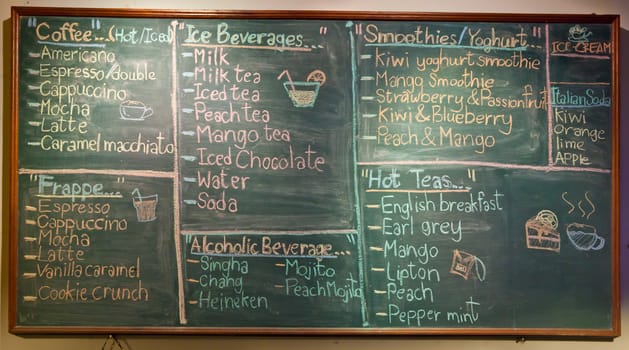 "Coffee"...(Hot/Iced)
-Americano
-Espresso/double
-Cappuccino
-Mocha
-Latte
-Caramel macchiato
"Frappe..."
-Espresso
-Cappuccino
-Mocha
-Latte
-Vanilla caramel
-Cookie crunch
"Ice Beverages..."
-Milk
-Milk tea
-Iced tea
-Peach tea
-Mango tea
-Iced Chocolate
-Water
-Soda
"Alcoholic Beverage..."
-Singha
-chang
-Heineken
-Mojito
-Peach Mojito
"Smoothies/Yoghurt..."
-Kiwi yoghurt smoothie
-Mango Smoothie
-Strawberry & Passionfruit
-Kiwi & Blueberry
-Peach & Mango
ICE-CREAM
Italian Soda
Kiwi
Orange
lime
Apple
"Hot Teas..."
-English breakfast
-Earl grey
-Mango
-Lipton
-Peach
-Pepper mint